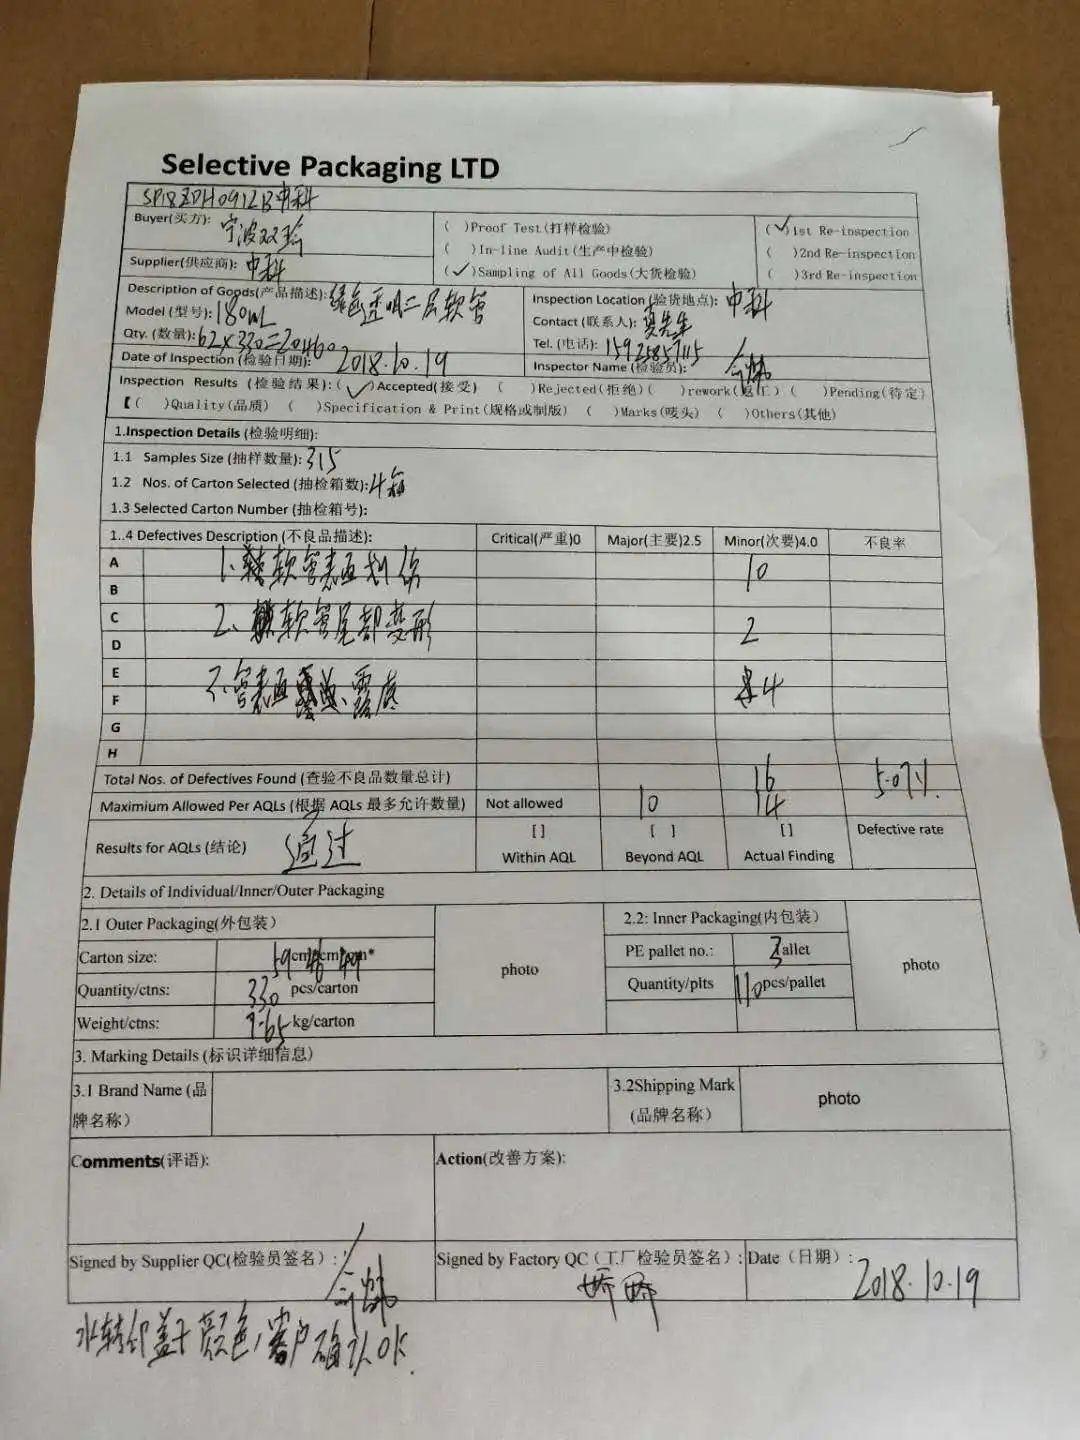 Selective Packaging LTD
SP18ZDH0912B中科
Buyer(买方): 宁波双玲
( )Proof Test(打样检验)
(✓)1st Re-inspection
( )In-line Audit(生产中检验)
( )2nd Re-inspection
Supplier(供应商): 中科
(✓)Sampling of All Goods(大货检验)
( )3rd Re-inspection
Description of Goods(产品描述): 绿色透明二层软管
Inspection Location(验货地点): 中科
Model (型号): 180mL
Contact (联系人): 莫先生
Qty. (数量): 62x330=20460
Tel. (电话): 15925857115
Date of Inspection (检验日期): 2018.10.19
Inspector Name (检验员):
Inspection Results (检验结果):(✓)Accepted(接受) ( )Rejected(拒绝) ( )rework(返工) ( )Pending(待定)
【( )Quality(品质) ( )Specification & Print(规格或制版) ( )Marks(唛头) ( )Others(其他)
1.Inspection Details (检验明细):
1.1 Samples Size (抽样数量): 315
1.2 Nos. of Carton Selected (抽检箱数): 4箱
1.3 Selected Carton Number (抽检箱号):
1..4 Defectives Description (不良品描述): Critical(严重)0 Major(主要)2.5 Minor(次要)4.0 不良率
A 1、软管表面划伤 10
B
C 2、软管尾部变形 2
D
E 3、管表面 4
F
G
H
Total Nos. of Defectives Found (查验不良品数量总计) 16 5.07%
Maximium Allowed Per AQLs (根据 AQLs 最多允许数量) Not allowed 10 14
Results for AQLs (结论) 通过
[ ] [ ] [ ] Defective rate
Within AQL Beyond AQL Actual Finding
2. Details of Individual/Inner/Outer Packaging
2.1 Outer Packaging(外包装)
2.2: Inner Packaging(内包装)
Carton size: 59cm*46cm*49cm*
photo
PE pallet no.: 3 allet
photo
Quantity/ctns: 330 pcs/carton
Quantity/plts 110 pcs/pallet
Weight/ctns: 9.65 kg/carton
3. Marking Details (标识详细信息)
3.1 Brand Name (品牌名称)
3.2Shipping Mark (品牌名称)
photo
Comments(评语):
Action(改善方案):
Signed by Supplier QC(检验员签名):
Signed by Factory QC (工厂检验员签名): 娇娜
Date (日期): 2018.10.19
水转印盖子颜色,客户确认OK.